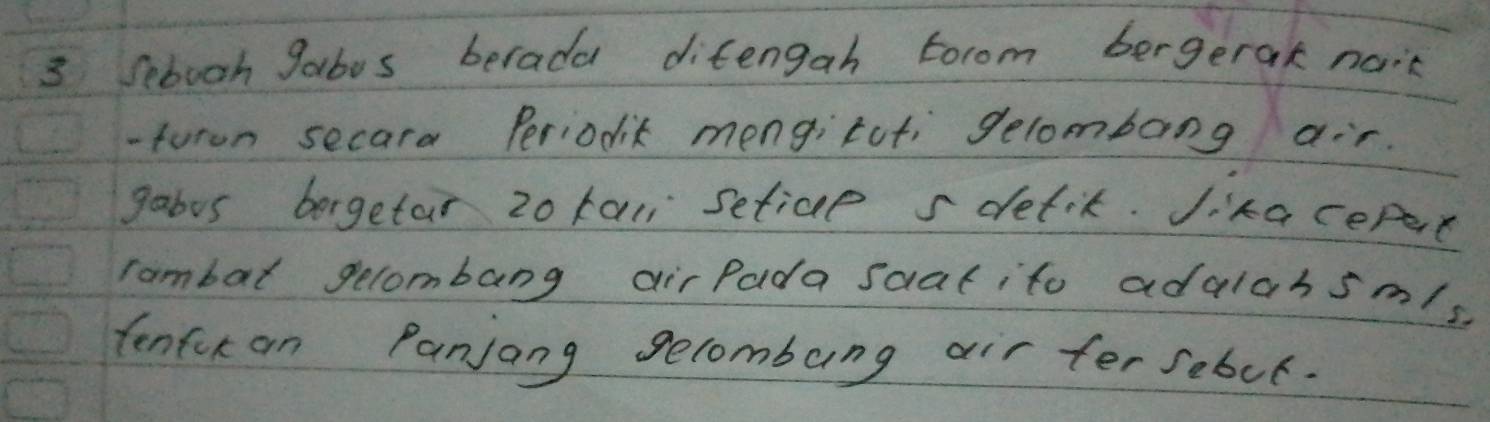 3 Sebuah gabus berada ditengah kolam bergerak naik
-turun secara Periodik mengikuti gelombang air.
gabus bergetar 20 kali setiap 5 detik. Jika cepat
rambat gelombang air Pada saat itu adalah 5 m/s.
Tentukan Panjang gelombang air tersebut.